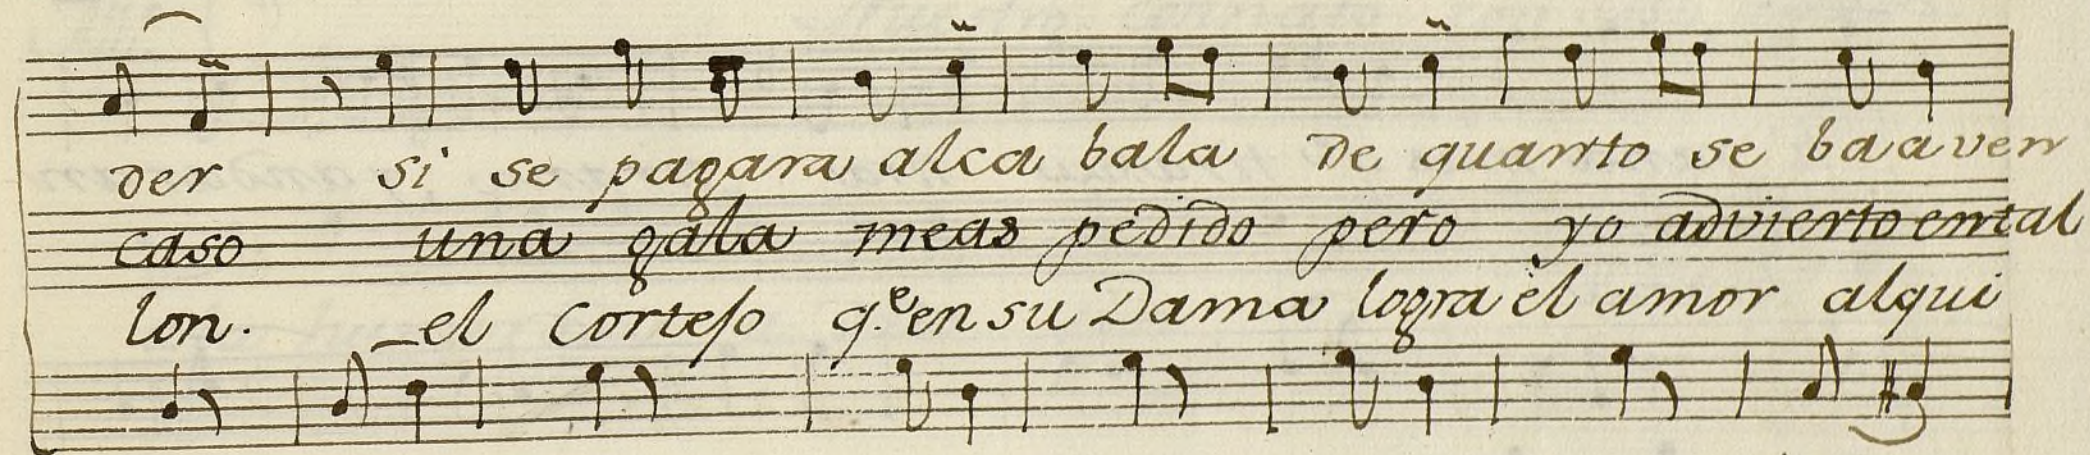 der si se pagara alca bala de quanto se ba a ven
caso una gala meas pedido pero yo advierto en tal
lon. el Cortejo q.e en su Dama logra el amor alqui